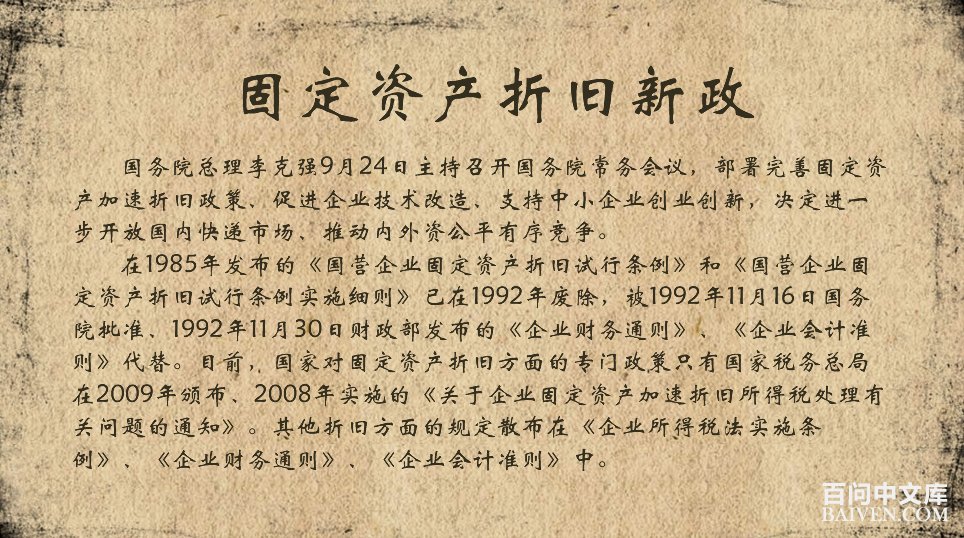 固定资产折旧新政
国务院总理李克强9月24日主持召开国务院常务会议，部署完善固定资
产加速折旧政策、促进企业技术改造、支持中小企业创业创新，决定进一
步开放国内快递市场、推动内外资公平有序竞争。
在1985年发布的《国营企业固定资产折旧试行条例》和《国营企业固
定资产折旧试行条例实施细则》已在1992年废除，被1992年11月16日国务
院批准、1992年11月30日财政部发布的《企业财务通则》、《企业会计准
则》代替。目前，国家对固定资产折旧方面的专门政策只有国家税务总局
在2009年颁布、2008年实施的《关于企业固定资产加速折旧所得税处理有
关问题的通知》。其他折旧方面的规定散布在《企业所得税法实施条
例》、《企业财务通则》、《企业会计准则》中。
百问中文库
BAIVEN.COM